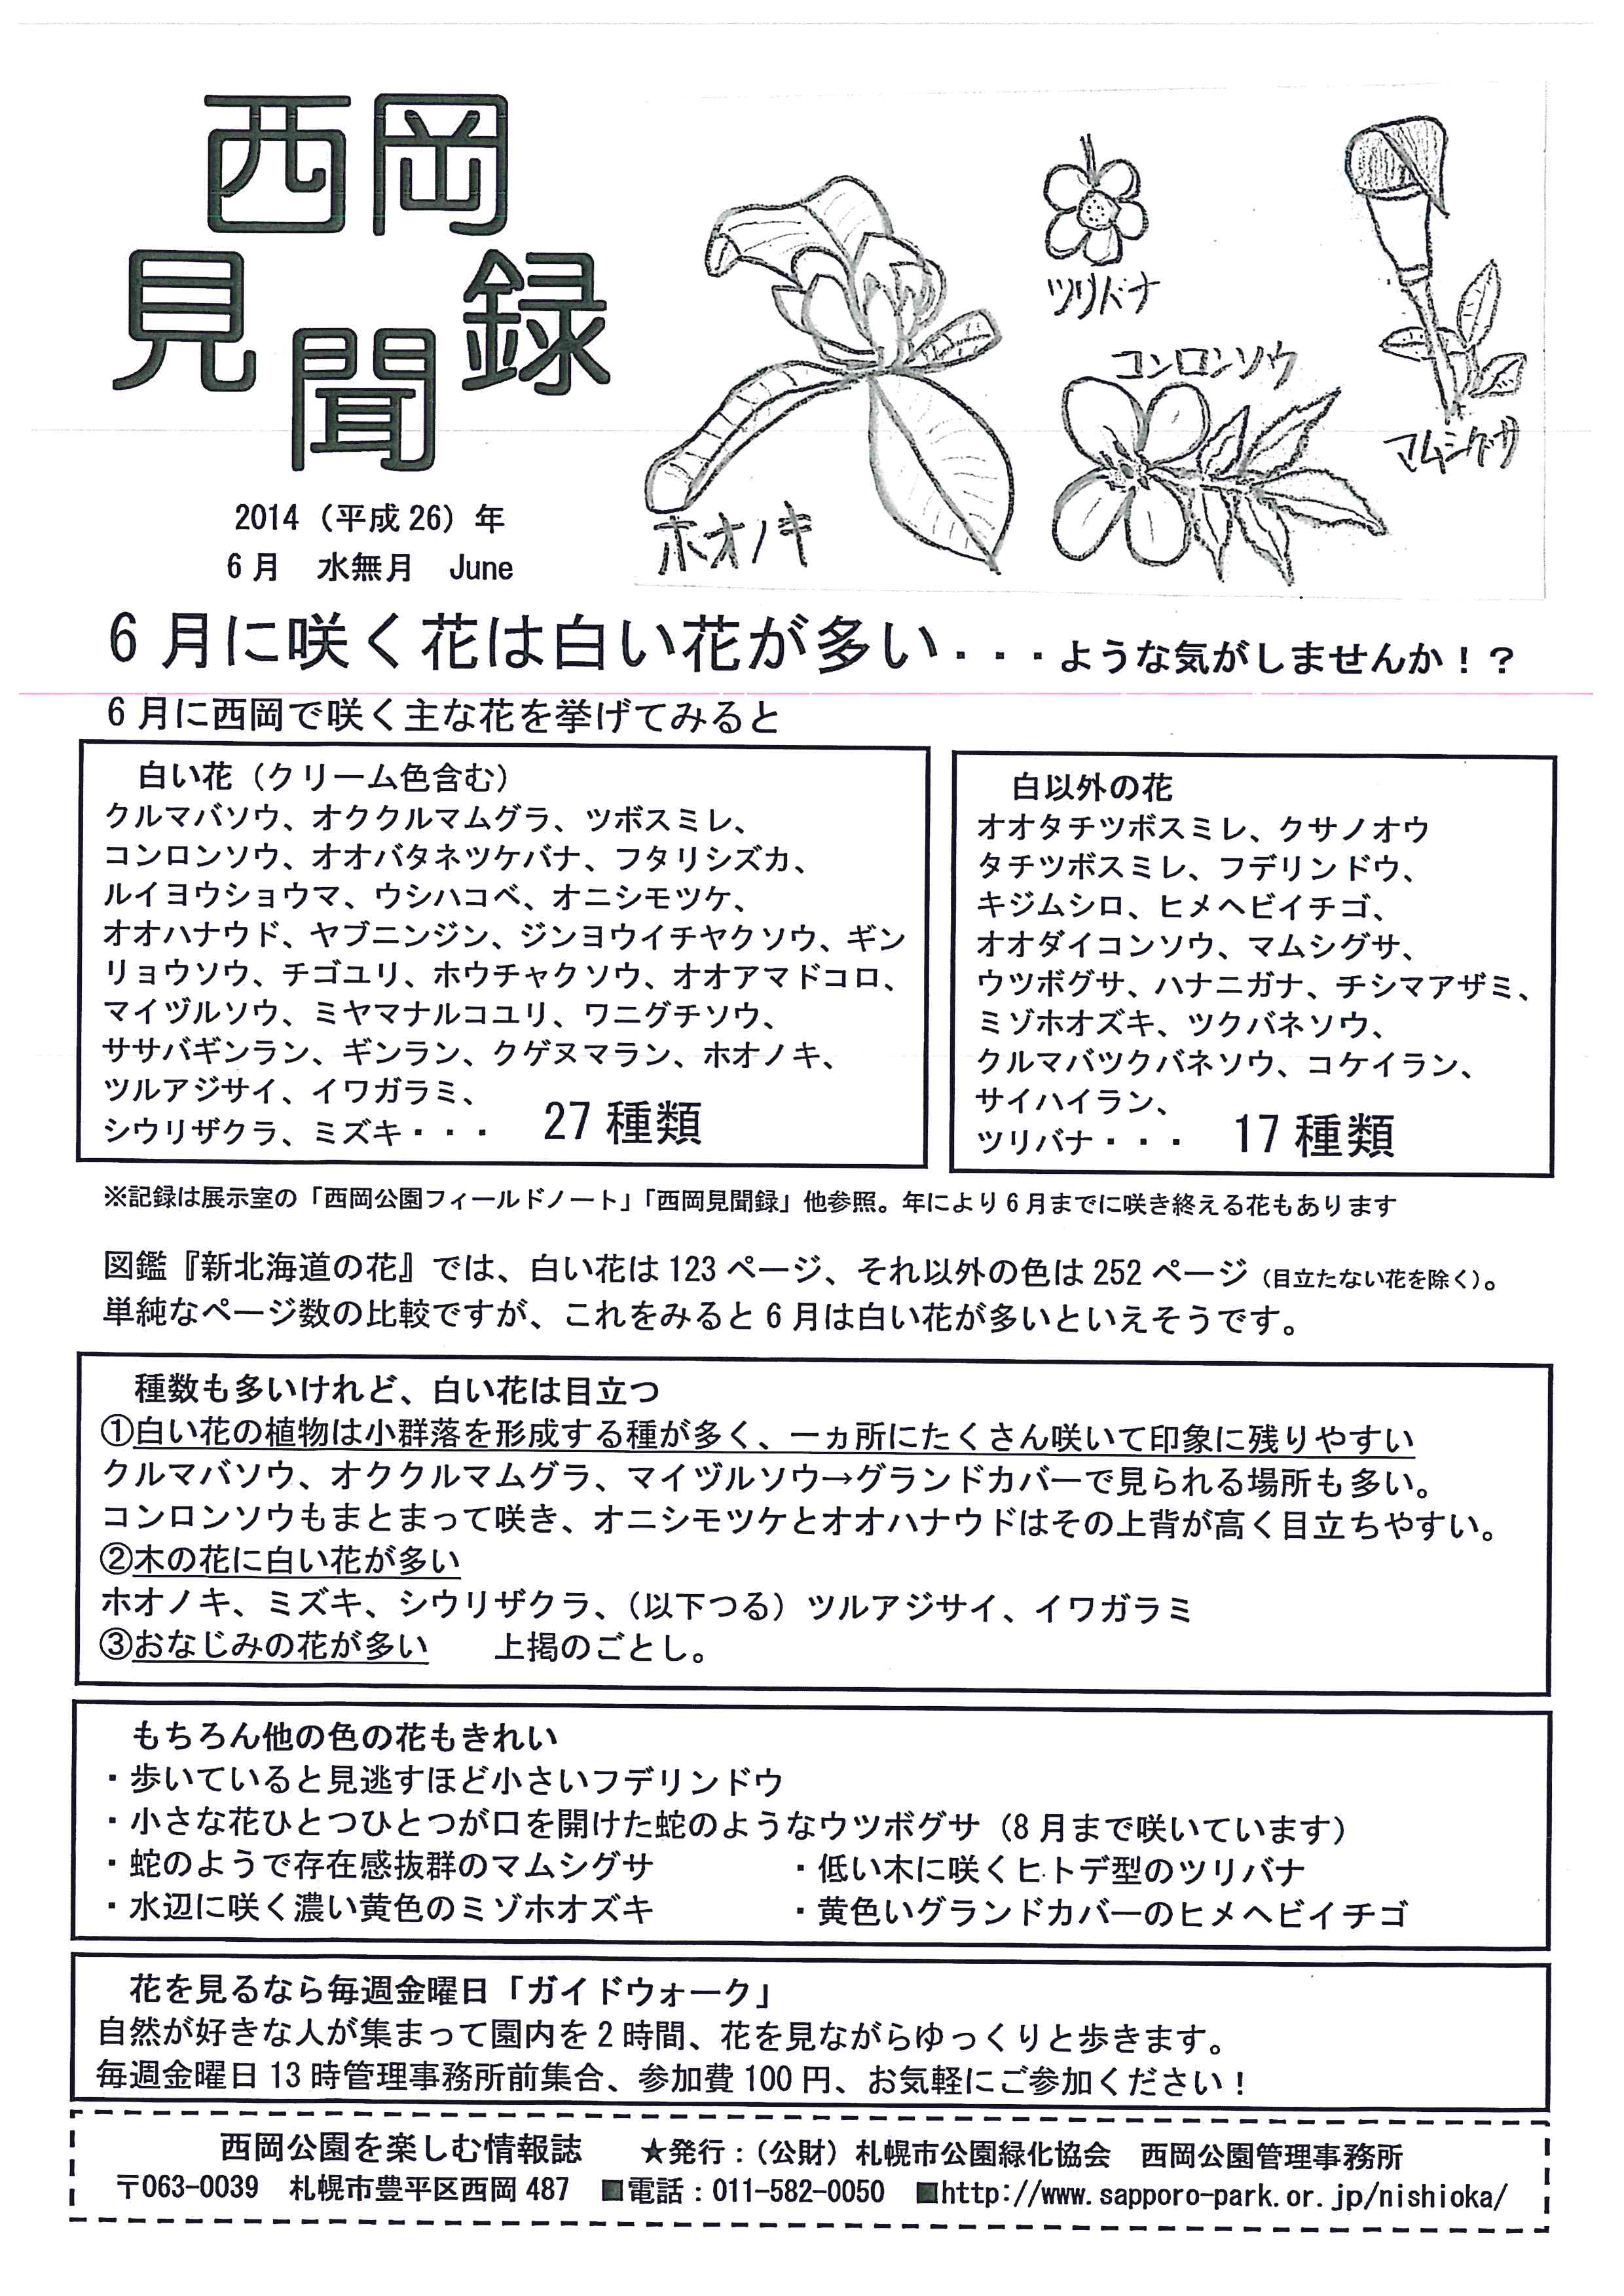 西岡
見聞録
2014（平成26）年
6月　水無月　June
ホオノキ
ツリバナ
コンロンソウ
マムシグサ
6月に咲く花は白い花が多い・・・ような気がしませんか！？
6月に西岡で咲く主な花を挙げてみると
白い花（クリーム色含む）
クルマバソウ、オククルマムグラ、ツボスミレ、
コンロンソウ、オオバタネツケバナ、フタリシズカ、
ルイヨウショウマ、ウシハコベ、オニシモツケ、
オオハナウド、ヤブニンジン、ジンヨウイチヤクソウ、ギン
リョウソウ、チゴユリ、ホウチャクソウ、オオアマドコロ、
マイヅルソウ、ミヤマナルコユリ、ワニグチソウ、
ササバギンラン、ギンラン、クゲヌマラン、ホオノキ、
ツルアジサイ、イワガラミ、
シウリザクラ、ミズキ・・・　27種類
白以外の花
オオタチツボスミレ、クサノオウ
タチツボスミレ、フデリンドウ、
キジムシロ、ヒメヘビイチゴ、
オオダイコンソウ、マムシグサ、
ウツボグサ、ハナニガナ、チシマアザミ、
ミゾホオズキ、ツクバネソウ、
クルマバツクバネソウ、コケイラン、
サイハイラン、
ツリバナ・・・　17種類
※記録は展示室の「西岡公園フィールドノート」「西岡見聞録」他参照。年により6月までに咲き終える花もあります
図鑑『新北海道の花』では、白い花は123ページ、それ以外の色は252ページ（目立たない花を除く）。
単純なページ数の比較ですが、これをみると6月は白い花が多いといえそうです。
種数も多いけれど、白い花は目立つ
①白い花の植物は小群落を形成する種が多く、一ヵ所にたくさん咲いて印象に残りやすい
クルマバソウ、オククルマムグラ、マイヅルソウ→グランドカバーで見られる場所も多い。
コンロンソウもまとまって咲き、オニシモツケとオオハナウドはその上背が高く目立ちやすい。
②木の花に白い花が多い
ホオノキ、ミズキ、シウリザクラ、（以下つる）ツルアジサイ、イワガラミ
③おなじみの花が多い　　上掲のごとし。
もちろん他の色の花もきれい
・歩いていると見逃すほど小さいフデリンドウ
・小さな花ひとつひとつが口を開けた蛇のようなウツボグサ（8月まで咲いています）
・蛇のようで存在感抜群のマムシグサ　　・低い木に咲くヒトデ型のツリバナ
・水辺に咲く濃い黄色のミゾホオズキ　　・黄色いグランドカバーのヒメヘビイチゴ
花を見るなら毎週金曜日「ガイドウォーク」
自然が好きな人が集まって園内を2時間、花を見ながらゆっくりと歩きます。
毎週金曜日13時管理事務所前集合、参加費100円、お気軽にご参加ください！
西岡公園を楽しむ情報誌　★発行：（公財）札幌市公園緑化協会　西岡公園管理事務所
〒063-0039　札幌市豊平区西岡487　■電話：011-582-0050　■http://www.sapporo-park.or.jp/nishioka/